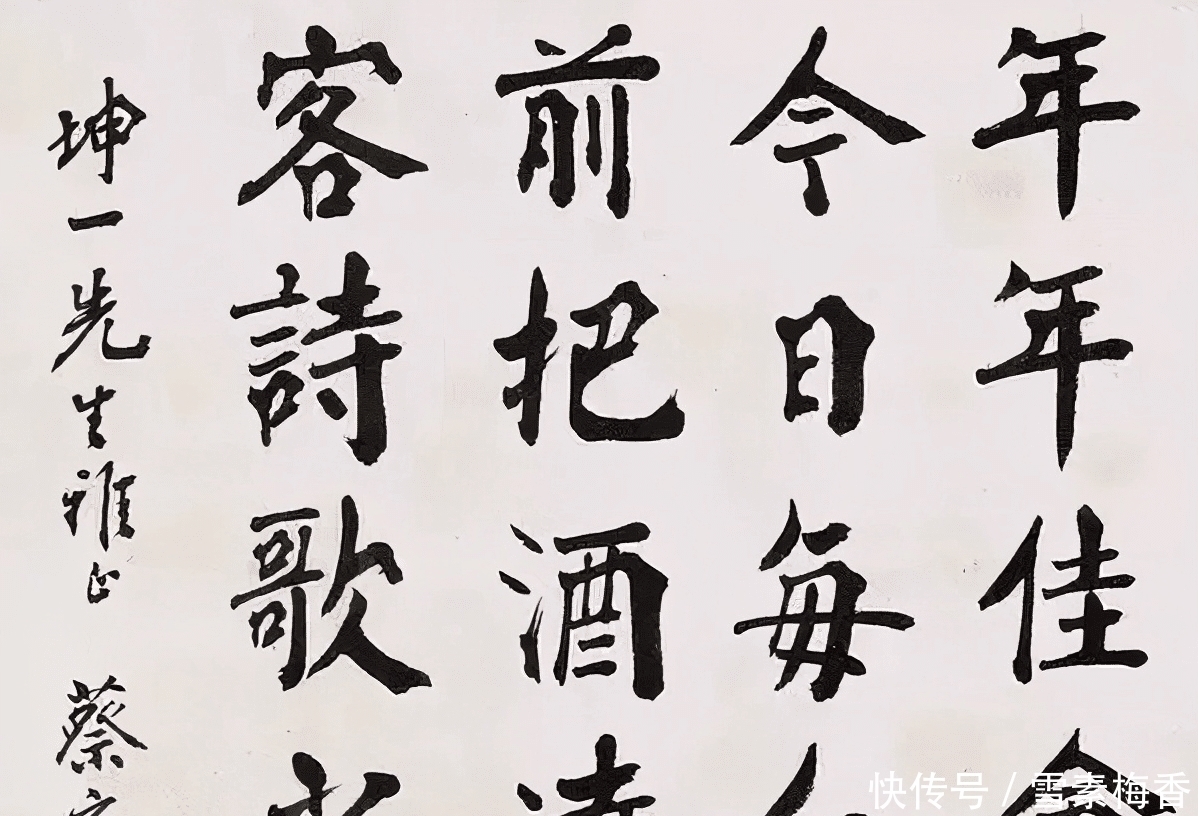 年年佳
今日每
前把酒
客詩歌
坤一先生雅正 蔡
快传号 / 雪素梅香